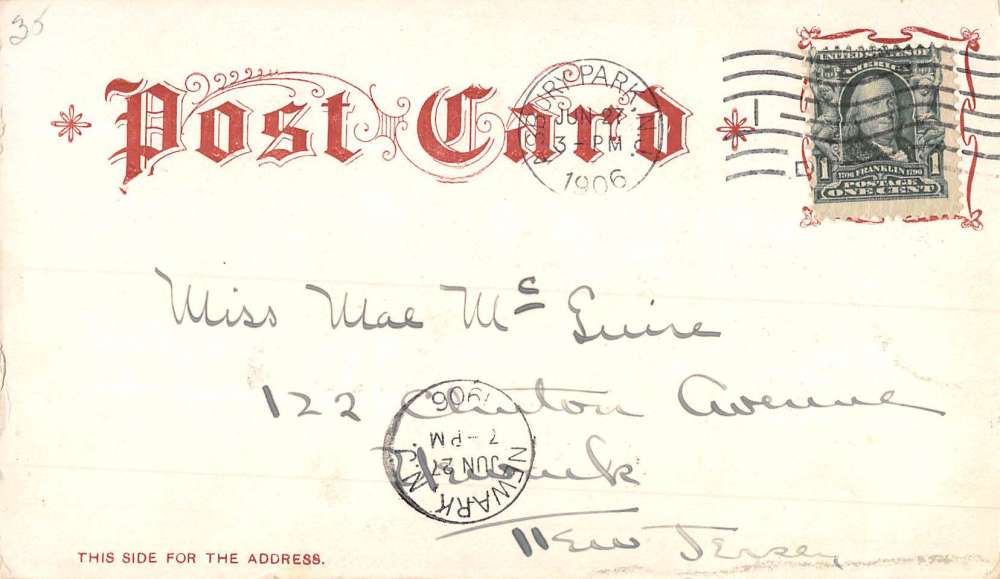 35
Post Card
ASBURY PARK, N.J.
JUN 27
3-PM
1906
1
D
UNITED STATES OF
AMERICA
1 1706 FRANKLIN 1790 1
POSTAGE
ONE CENT
Miss Mae Mc Guire
122 Clinton Avenue
Newark
New Jersey
NEWARK N.J.
JUN 27
7-PM
1906
THIS SIDE FOR THE ADDRESS.